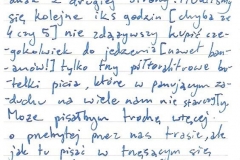 się kolejne iks godzin [chyba ze
4 czy 5] nie zdążywszy kupić cze-
gokolwiek do jedzenia [nawet ban-
anów!] tylko trzy półtoralitrowe bu-
telki picia, które w panującym za-
duchu na wiele nam nie starczyły.
Może pisałbym trochę więcej
o przebytej przez nas trasie, ale
jak tu pisać w trzęsącym się